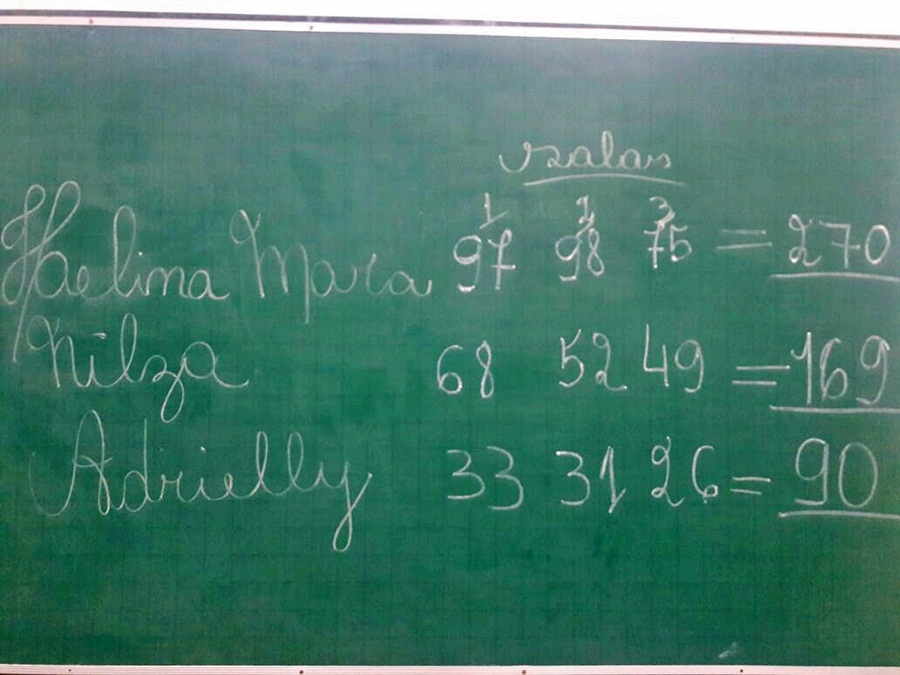 salas
1 2 3
Haelima Mara 97 98 75 = 270
Nilza 68 52 49 = 169
Adrielly 33 31 26 = 90